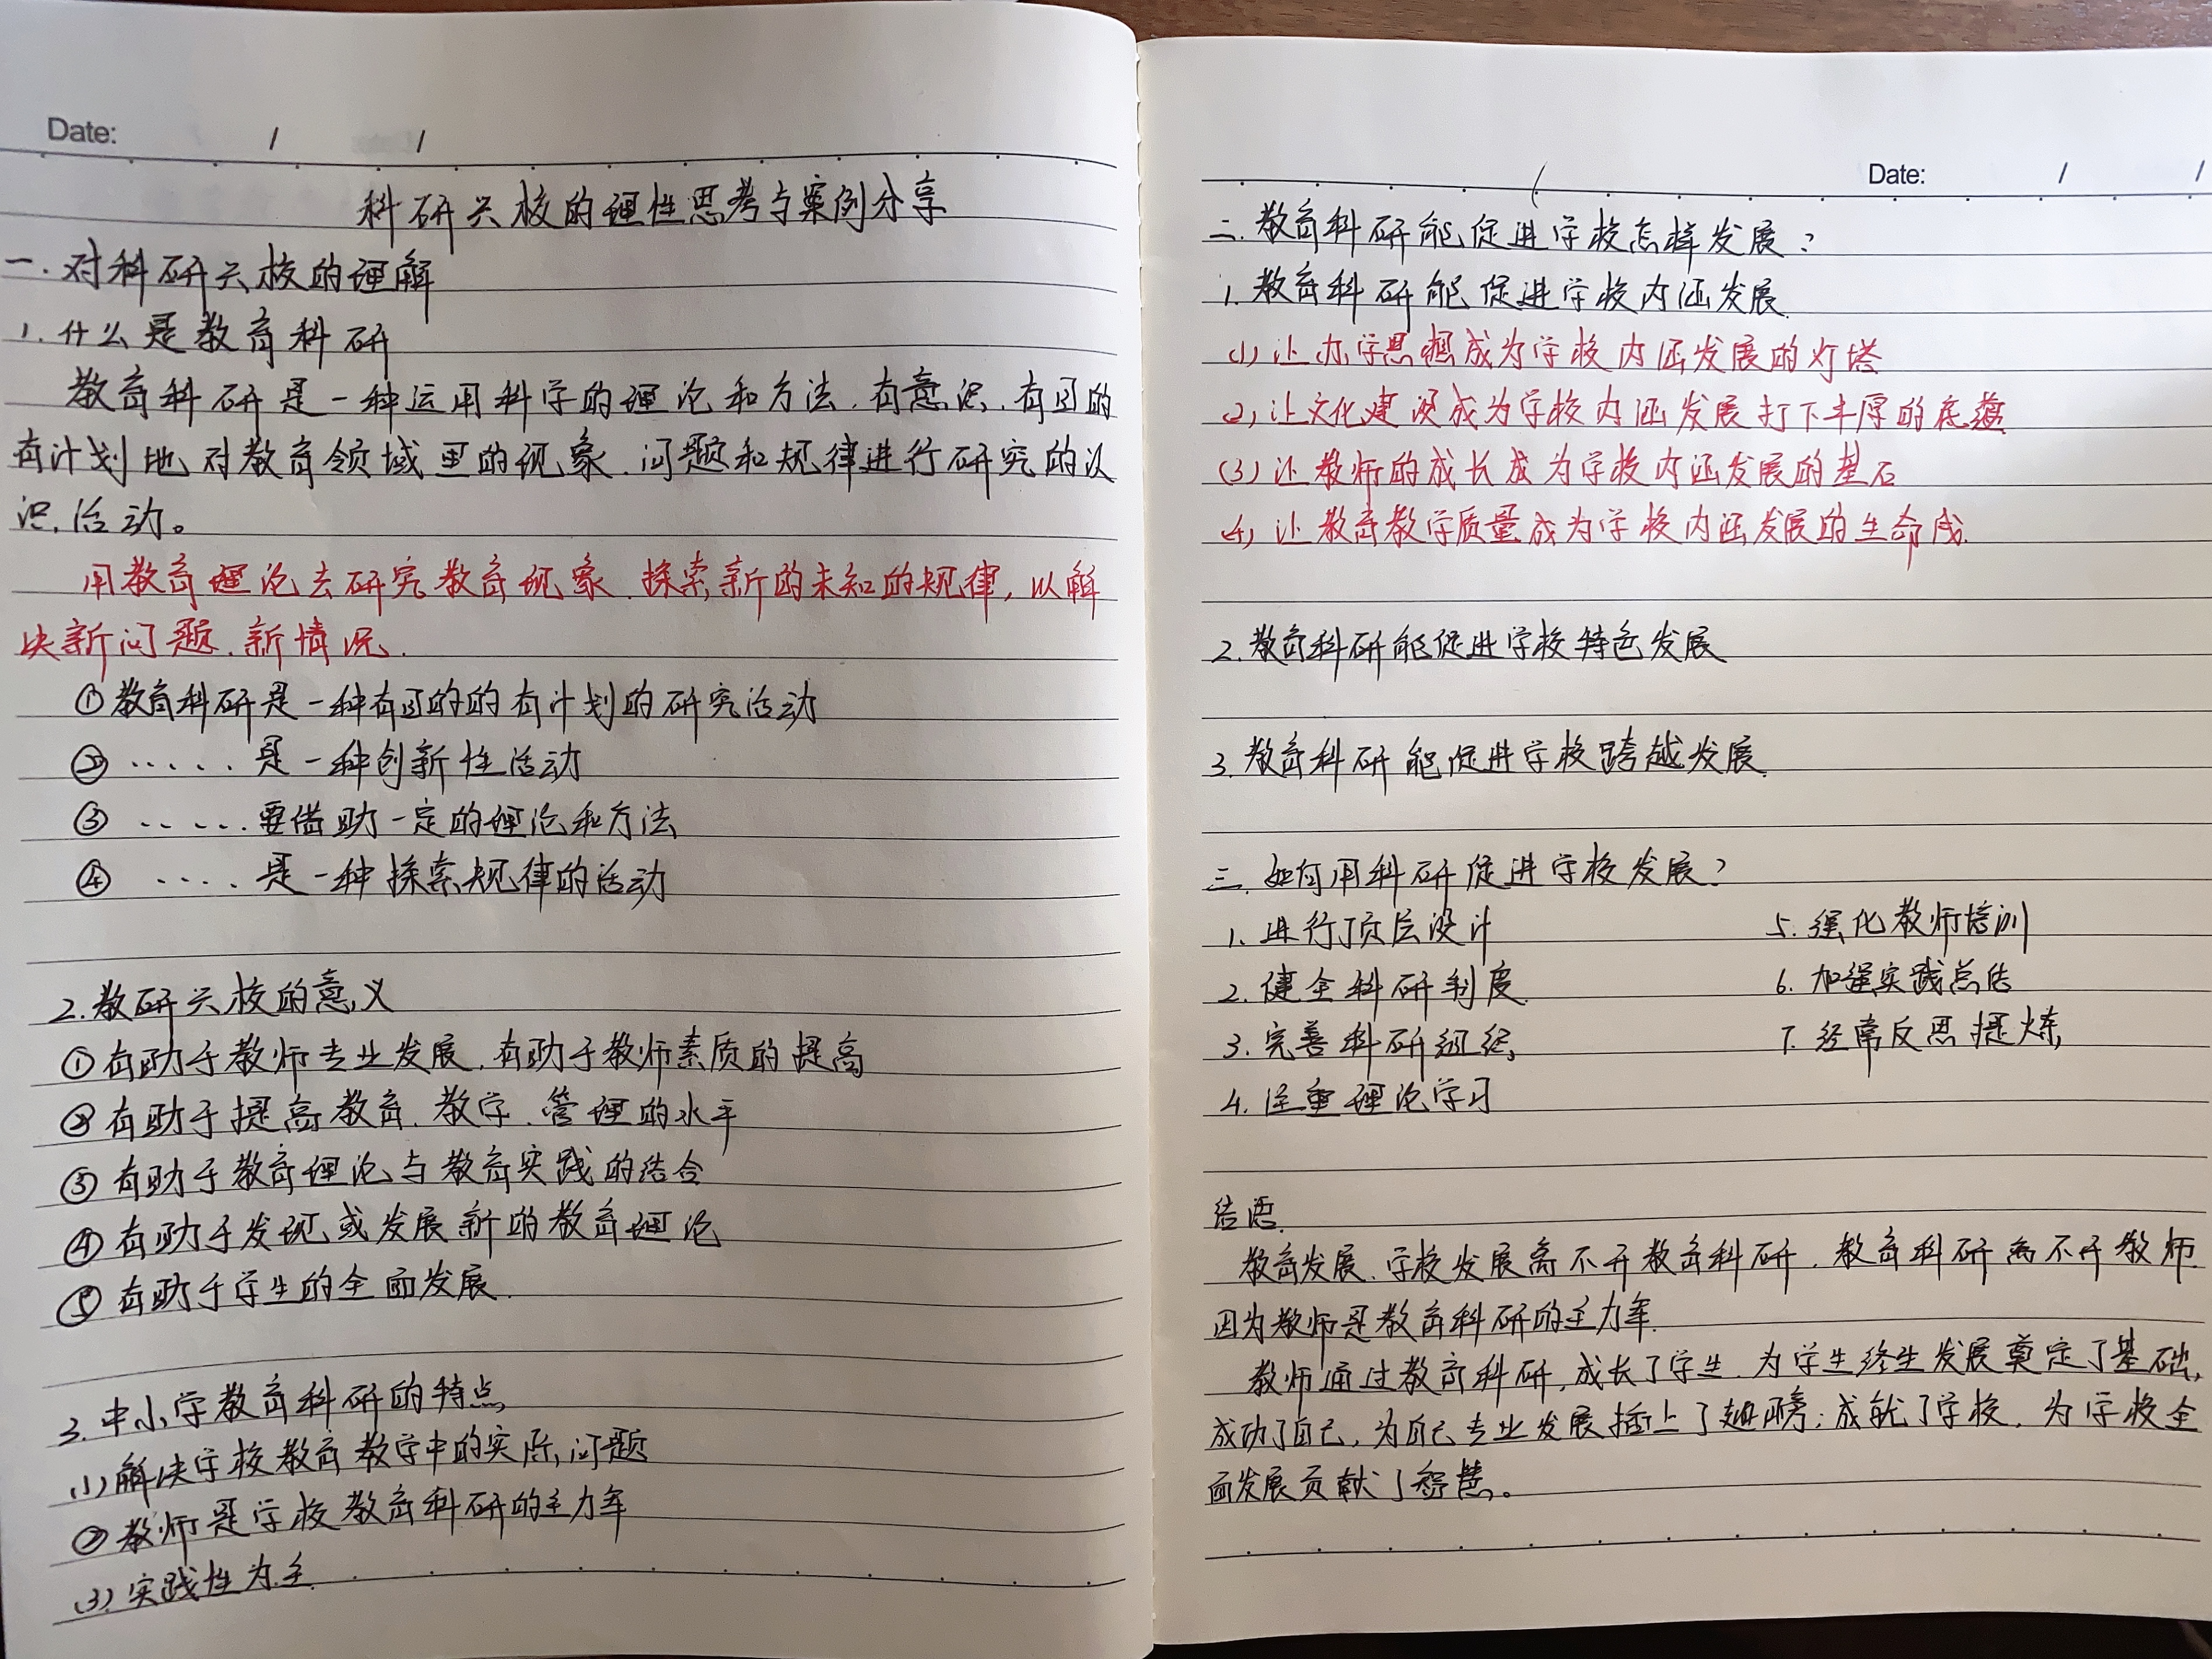 Date: / /
科研兴校的理性思考与案例分享
一. 对科研兴校的理解
1. 什么是教育科研
教育科研是一种运用科学的理论和方法.有意识.有目的
有计划地对教育领域里的现象.问题和规律进行研究的认
识活动。
用教育理论去研究教育现象.探索新的未知的规律,以解
决新问题.新情况.
①教育科研是一种有目的的有计划的研究活动
② ..... 是一种创新性活动
③ ..... 要借助一定的理论和方法
④ .... 是一种探索规律的活动
2.教研兴校的意义
①有助于教师专业发展.有助于教师素质的提高
②有助于提高教育.教学.管理的水平
③有助于教育理论与教育实践的结合
④有助于发现或发展新的教育理论
⑤有助于学生的全面发展.
3.中小学教育科研的特点
(1)解决学校教育教学中的实际问题
②教师是学校教育科研的主力军
(3).实践性为主.
Date: / /
二.教育科研能促进学校怎样发展?
1.教育科研能促进学校内涵发展.
(1)让办学思想成为学校内涵发展的灯塔
(2)让文化建设成为学校内涵发展打下丰厚的底蕴
(3)让教师的成长成为学校内涵发展的基石
(4)让教育教学质量成为学校内涵发展的生命成.
2.教育科研能促进学校特色发展
3.教育科研能促进学校跨越发展.
三.如何用科研促进学校发展?
1.进行顶层设计
2.健全科研制度.
3.完善科研组织
4.注重理论学习
5.强化教师培训
6.加强实践总结
7.经常反思提炼
结语.
教育发展.学校发展离不开教育科研.教育科研离不开教师.
因为教师是教育科研的主力军.
教师通过教育科研,成长了学生.为学生终生发展奠定了基础,
成功了自己,为自己专业发展插上了翅膀;成就了学校,为学校全
面发展贡献了智慧。